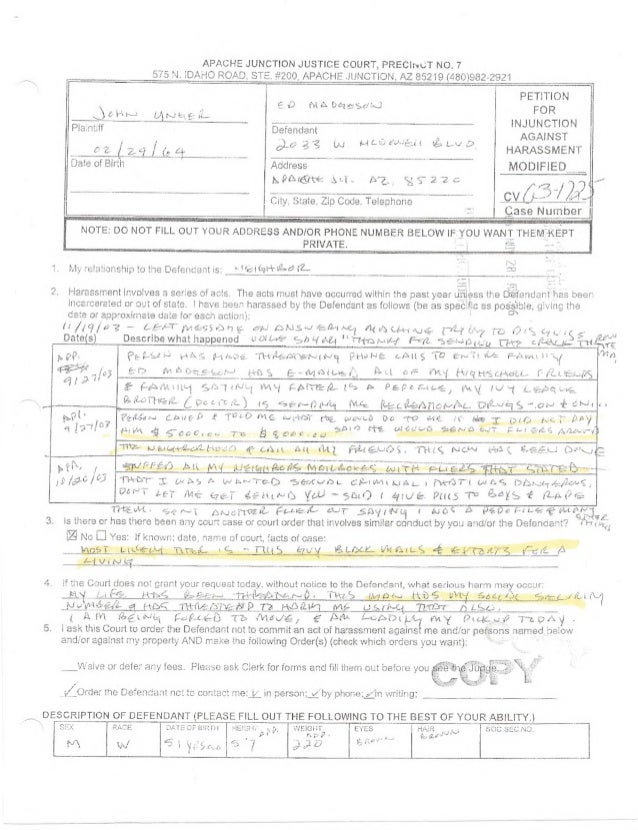 APACHE JUNCTION JUSTICE COURT, PRECINCT NO. 7
575 N. IDAHO ROAD, STE. #200, APACHE JUNCTION, AZ 85219 (480)982-2921
JOHN UNGER
Plaintiff
02/29/64
Date of Birth
ED MADGESON
Defendant
2033 W MCDOWELL BLVD.
Address
APACHE JCT. AZ. 85220
City, State, Zip Code, Telephone
PETITION
FOR
INJUNCTION
AGAINST
HARASSMENT
MODIFIED
CV 03-1225
Case Number
NOTE: DO NOT FILL OUT YOUR ADDRESS AND/OR PHONE NUMBER BELOW IF YOU WANT THEM KEPT
PRIVATE.
1. My relationship to the Defendant is: NEIGHBOR
2. Harassment involves a series of acts. The acts must have occurred within the past year unless the Defendant has been
incarcerated or out of state. I have been harassed by the Defendant as follows (be as specific as possible, giving the
date or approximate date for each action):
11/19/03 - LEFT MESSAGE ON ANSWERING MACHINE TRYING TO DISGUISE
Date(s) Describe what happened VOICE SAYING "THANKS FOR SENDING THE CRACK
APP.
9/27/03
PERSON HAS MADE THREATENING PHONE CALLS TO ENTIRE FAMILY
ED MADGESON HAS E-MAILED ALL OF MY HIGHSCHOOL FRIENDS
& FAMILY SAYING MY FATHER IS A PEDOFILE, MY IVY LEAGUE
BROTHER (DOCTER) IS SENDING ME RECREATIONAL DRUGS - ON & ON...
APP.
9/27/03
PERSON CALLED & TOLD ME WHAT HE WOULD DO TO ME IF I DID NOT PAY
HIM $5000.00 TO $8000.00 SAID HE WOULD SEND OUT FLIERS AROUND
THE NEIGHBORHOOD & CALL ALL MY FRIENDS. THIS NOW HAS BEEN DONE
APP.
10/20/03
STUFFED ALL MY NEIGHBORS MAILBOXES WITH FLIERS THAT STATED
THAT I WAS A WANTED SEXUAL CRIMINAL, THAT I WAS DANGEROUS,
DON'T LET ME GET BEHIND YOU - SAID I GIVE PILLS TO BOYS & RAPE
THEM. SENT ANOTHER FLIER OUT SAYING I WAS A PEDOFILE & MANY OTHER THINGS
3. Is there or has there been any court case or court order that involves similar conduct by you and/or the Defendant?
☒ No ☐ Yes: If known: date, name of court, facts of case:
MOST LIKELY THERE IS - THIS GUY BLACKMAILS & EXTORTS FOR A
LIVING
4. If the Court does not grant your request today, without notice to the Defendant, what serious harm may occur:
MY LIFE HAS BEEN THREATEND. THIS MAN HAS MY SOCIAL SECURITY
NUMBER & HAS THREATEND TO HARM ME USING THAT ALSO.
I AM BEING FORCED TO MOVE, & AM LOADING MY PICKUP TODAY.
5. I ask this Court to order the Defendant not to commit an act of harassment against me and/or persons named below
and/or against my property AND make the following Order(s) (check which orders you want):
Waive or defer any fees. Please ask Clerk for forms and fill them out before you see the Judge.
COPY
✓ Order the Defendant not to contact me: ✓ in person; ✓ by phone; ✓ in writing;
DESCRIPTION OF DEFENDANT (PLEASE FILL OUT THE FOLLOWING TO THE BEST OF YOUR ABILITY.)
SEX RACE DATE OF BIRTH HEIGHT APP. WEIGHT APP. EYES HAIR SOC.SEC.NO.
M W 51 YRS OLD 5'7 220 BROWN BROWN